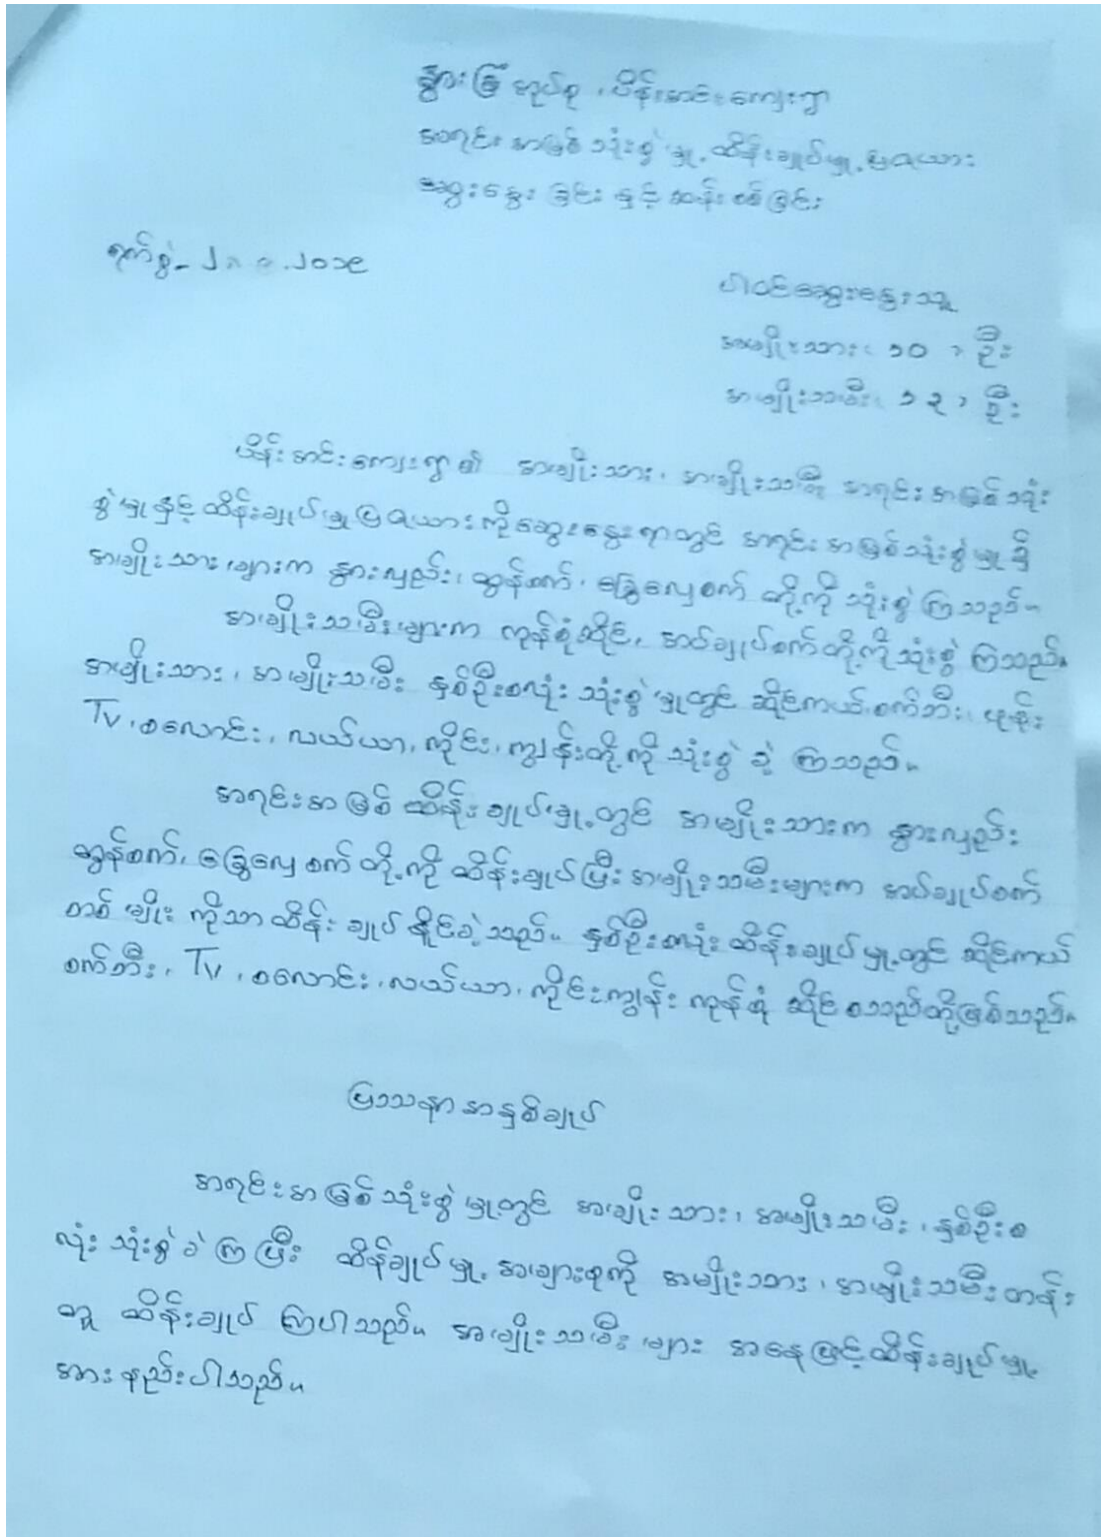 နွားခြံအုပ်စု၊ ပိန်းအင်းကျေးရွာ
အရင်းအမြစ်သုံးစွဲမှု့ ထိန်းချုပ်မှု့ ပြဇယား
ဆွေးနွေးခြင်းနှင့် ဆန်းစစ်ခြင်း
ရက်စွဲ- .၂၀၁၉
ပါဝင်ဆွေးနွေးသူ
အမျိုးသား( ၁၀ ) ဦး
အမျိုးသမီး( ၁၃ ) ဦး
ပိန်းအင်းကျေးရွာ၏ အမျိုးသား၊ အမျိုးသမီး အရင်းအမြစ်သုံး
စွဲမှုနှင့် ထိန်းချုပ်မှုပြဇယားကိုဆွေးနွေးရာတွင် အရင်းအမြစ်သုံးစွဲမှု၌
အမျိုးသားများက နွားလှည်း၊ ထွန်စက်၊ ခြွေလှေ့စက် တို့ကို သုံးစွဲကြသည်။
အမျိုးသမီးများက ကုန်စုံဆိုင်၊ အပ်ချုပ်စက်တို့ကိုသုံးစွဲကြသည်။
အမျိုးသား၊ အမျိုးသမီး နှစ်ဦးစလုံး သုံးစွဲမှုတွင် ဆိုင်ကယ်၊ စက်ဘီး၊ ဖုန်း
TV၊ စလောင်း၊ လယ်ယာ၊ ကိုင်း၊ ကျွန်းတို့ကို သုံးစွဲခဲ့ကြသည်။
အရင်းအမြစ် ထိန်းချုပ်မှု့တွင် အမျိုးသားက နွားလှည်း
ထွန်စက်၊ ခြွေလှေ့စက်တို့ကို ထိန်းချုပ်ပြီး အမျိုးသမီးများက အပ်ချုပ်စက်
တစ်မျိုး ကိုသာထိန်းချုပ်နိုင်ခဲ့သည်။ နှစ်ဦးစလုံးထိန်းချုပ်မှု့တွင် ဆိုင်ကယ်
စက်ဘီး၊ TV ၊ စလောင်း၊ လယ်ယာ၊ ကိုင်းကျွန်း ကုန်စုံဆိုင် စသည်တို့ဖြစ်သည်။
ပြဿနာအနှစ်ချုပ်
အရင်းအမြစ်သုံးစွဲမှုတွင် အမျိုးသား၊ အမျိုးသမီး၊ နှစ်ဦးစ
လုံး သုံးစွဲခဲ့ကြပြီး ထိန်ချုပ်မှု့ အများစုကို အမျိုးသား၊ အမျိုးသမီးတန်း
တူ ထိန်းချုပ်ကြပါသည်။ အမျိုးသမီးများ အနေဖြင့်ထိန်းချုပ်မှု့
အားနည်းပါသည်။